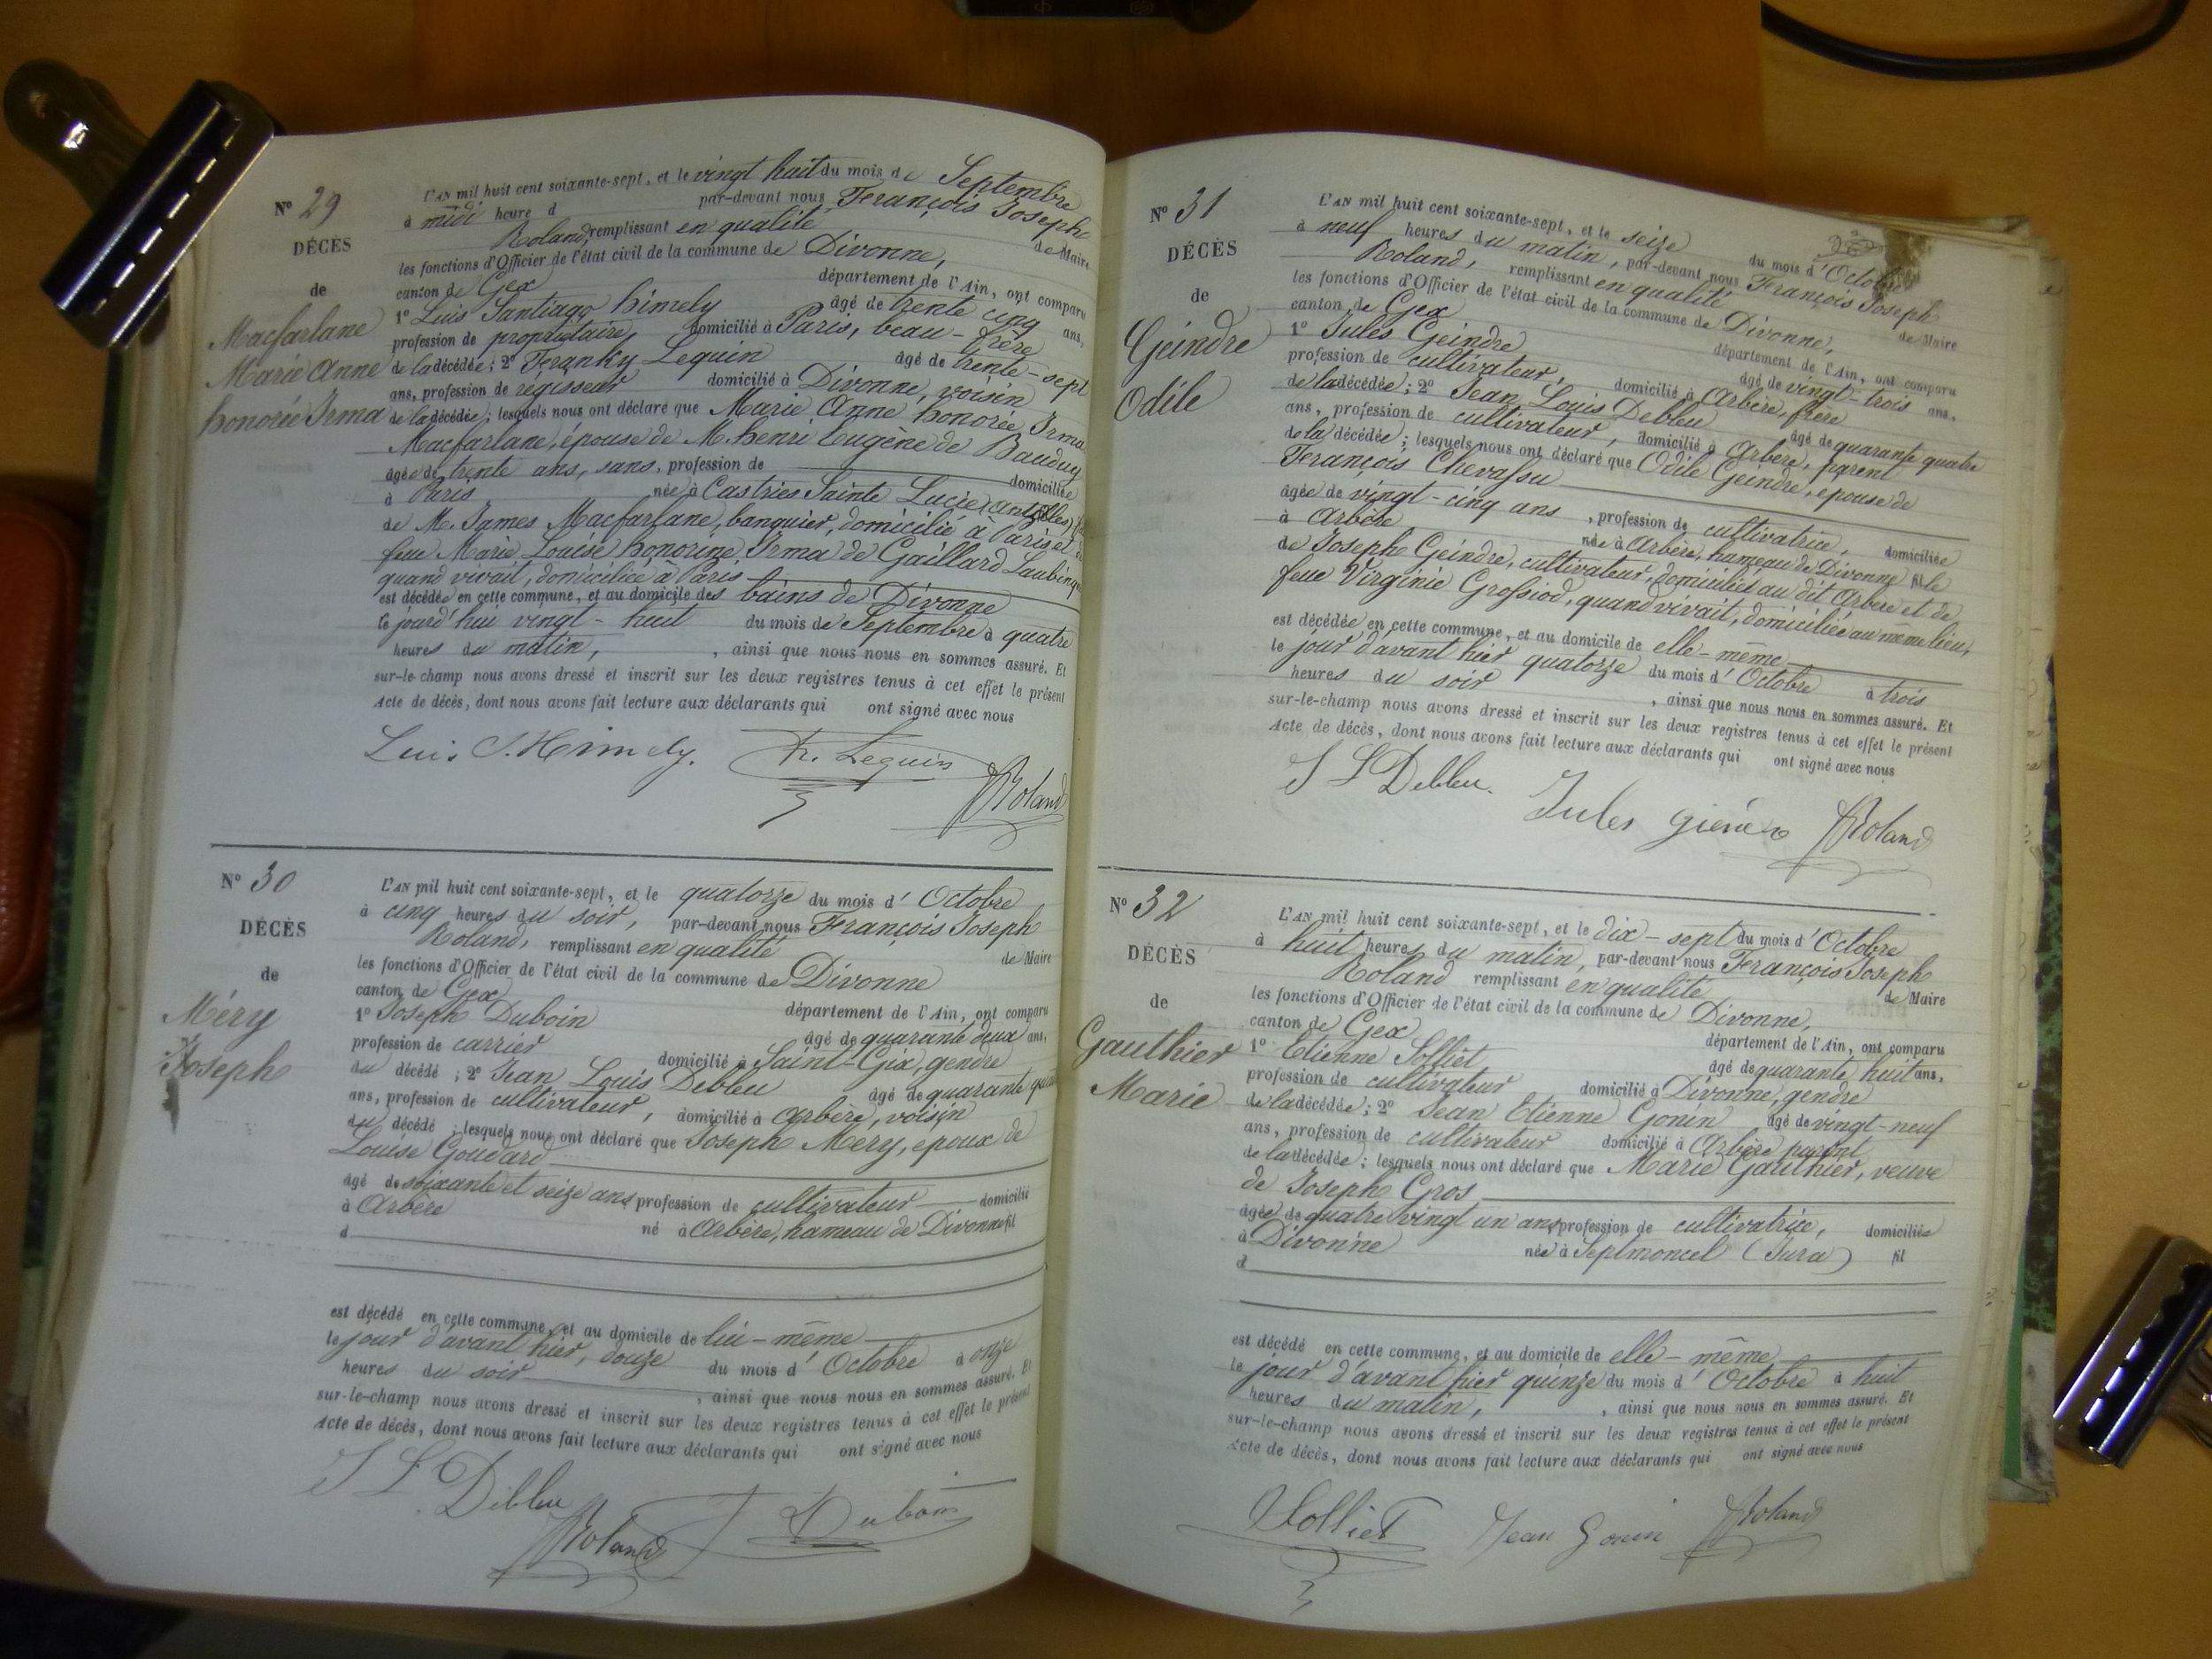 N° 29
DÉCÈS
de
Macfarlane
Marie Anne
honorée Irma
L'AN mil huit cent soixante-sept, et le vingt huit du mois de Septembre
à midi heure d par-devant nous François Joseph
Roland, remplissant en qualité de Maire
les fonctions d'Officier de l'état civil de la commune de Divonne,
canton de Gex département de l'Ain, ont comparu
1° Luis Santiago himely âgé de trente cinq ans,
profession de propriétaire, domicilié à Paris, beau-frère
de la décédée; 2° Franky Lequin âgé de trente-sept
ans, profession de régisseur domicilié à Divonne, voisin
de la décédée; lesquels nous ont déclaré que Marie Anne honorée Irma
Macfarlane, épouse de M. henri Eugène de Bauduy
âgée de trente ans, sans profession de domiciliée
à Paris née à Castries Sainte Lucie (antilles)
de M. James Macfarlane, banquier, domicilié à Paris et
feue Marie Louise honorine Irma de Gaillard Laubinque
quand vivait, domiciliée à Paris
est décédée en cette commune, et au domicile des bains de Divonne
le jourd'hui vingt-huit du mois de Septembre à quatre
heures du matin, , ainsi que nous nous en sommes assuré. Et
sur-le-champ nous avons dressé et inscrit sur les deux registres tenus à cet effet le présent
Acte de décès, dont nous avons fait lecture aux déclarants qui ont signé avec nous
Luis S. Himely. Fr. Lequin
Roland
N° 30
DÉCÈS
de
Méry
Joseph
L'AN mil huit cent soixante-sept, et le quatorze du mois d'Octobre
à cinq heures du soir, par-devant nous François Joseph
Roland, remplissant en qualité de Maire
les fonctions d'Officier de l'état civil de la commune de Divonne
canton de Gex département de l'Ain, ont comparu
1° Joseph Duboin âgé de quarante deux ans,
profession de carrier domicilié à Saint-Gix, gendre
du décédé; 2° Jean Louis Debleu âgé de quarante
ans, profession de cultivateur, domicilié à Arbère, voisin
du décédé; lesquels nous ont déclaré que Joseph Méry, époux de
Louise Goudard
âgé de soixante et seize ans profession de cultivateur domicilié
à Arbère né à Arbère, hameau de Divonne fil
d
est décédé en cette commune, et au domicile de lui-même
le jour d'avant hier, douze du mois d'Octobre à onze
heures du soir , ainsi que nous nous en sommes assuré. Et
sur-le-champ nous avons dressé et inscrit sur les deux registres tenus à cet effet le présent
Acte de décès, dont nous avons fait lecture aux déclarants qui ont signé avec nous
J L Debleu
Roland Duboin
N° 31
DÉCÈS
de
Geindre
Odile
L'AN mil huit cent soixante-sept, et le seize du mois d'Octobre
à neuf heures du matin, par-devant nous François Joseph
Roland, remplissant en qualité de Maire
les fonctions d'Officier de l'état civil de la commune de Divonne,
canton de Gex département de l'Ain, ont comparu
1° Jules Geindre âgé de vingt-trois ans,
profession de cultivateur, domicilié à Arbère, frère
de la décédée; 2° Jean Louis Debleu âgé de quarante quatre
ans, profession de cultivateur, domicilié à Arbère, parent
de la décédée; lesquels nous ont déclaré que Odile Geindre, épouse de
François Chevassu
âgée de vingt-cinq ans, profession de cultivatrice, domiciliée
à Arbère née à Arbère, hameau de Divonne fille
de Joseph Geindre, cultivateur, domiciliés au dit Arbère et de
feue Virginie Grossiod, quand vivait, domiciliée au même lieu,
est décédée en cette commune, et au domicile de elle-même
le jour d'avant hier quatorze du mois d'Octobre à trois
heures du soir , ainsi que nous nous en sommes assuré. Et
sur-le-champ nous avons dressé et inscrit sur les deux registres tenus à cet effet le présent
Acte de décès, dont nous avons fait lecture aux déclarants qui ont signé avec nous
J L Debleu. Jules Roland
N° 32
DÉCÈS
de
Gauthier
Marie
L'AN mil huit cent soixante-sept, et le dix-sept du mois d'Octobre
à huit heures du matin, par-devant nous François Joseph
Roland remplissant en qualité de Maire
les fonctions d'Officier de l'état civil de la commune de Divonne,
canton de Gex département de l'Ain, ont comparu
1° Etienne Solliet âgé de quarante huit ans,
profession de cultivateur domicilié à Divonne, gendre
de la décédée; 2° Jean Etienne Gonin âgé de vingt-neuf
ans, profession de cultivateur domicilié à Arbère parent
de la décédée; lesquels nous ont déclaré que Marie Gauthier, veuve
de Joseph Gros
âgée de quatre vingt un ans profession de cultivatrice, domiciliée
à Divonne née à Septmoncel (Jura) fil
d
est décédé en cette commune, et au domicile de elle-même
le jour d'avant hier quinze du mois d'Octobre à huit
heures du matin, , ainsi que nous nous en sommes assuré. Et
sur-le-champ nous avons dressé et inscrit sur les deux registres tenus à cet effet le présent
Acte de décès, dont nous avons fait lecture aux déclarants qui ont signé avec nous
Solliet Jean Gonin Roland